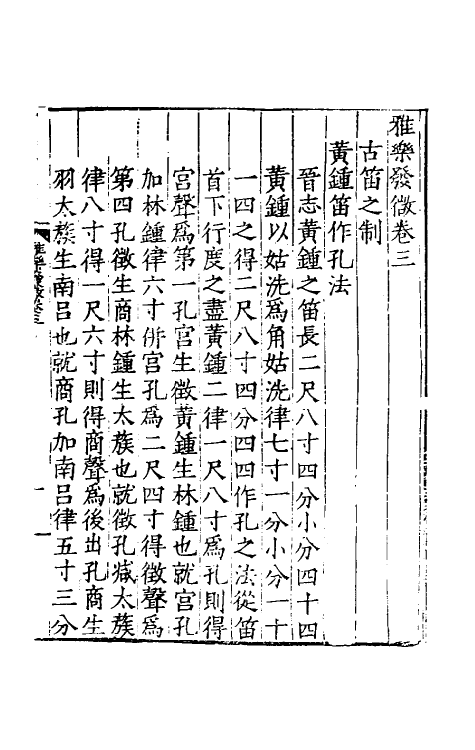 雅樂發微卷三
古笛之制
黃鍾笛作孔法
晉志黃鍾之笛長二尺八寸四分小分四十四
黃鍾以姑洗爲角姑洗律七寸一分小分一十
一四之得二尺八寸四分四四作孔之法從笛
首下行度之盡黃鍾二律一尺八寸爲孔則得
宮聲爲第一孔宮生徵黃鍾生林鍾也就宮孔
加林鍾律六寸併宮孔爲二尺四寸得徵聲爲
第四孔徵生商林鍾生太蔟也就徵孔减太蔟
律八寸得一尺六寸則得商聲爲後出孔商生
羽太蔟生南呂也就商孔加南呂律五寸三分